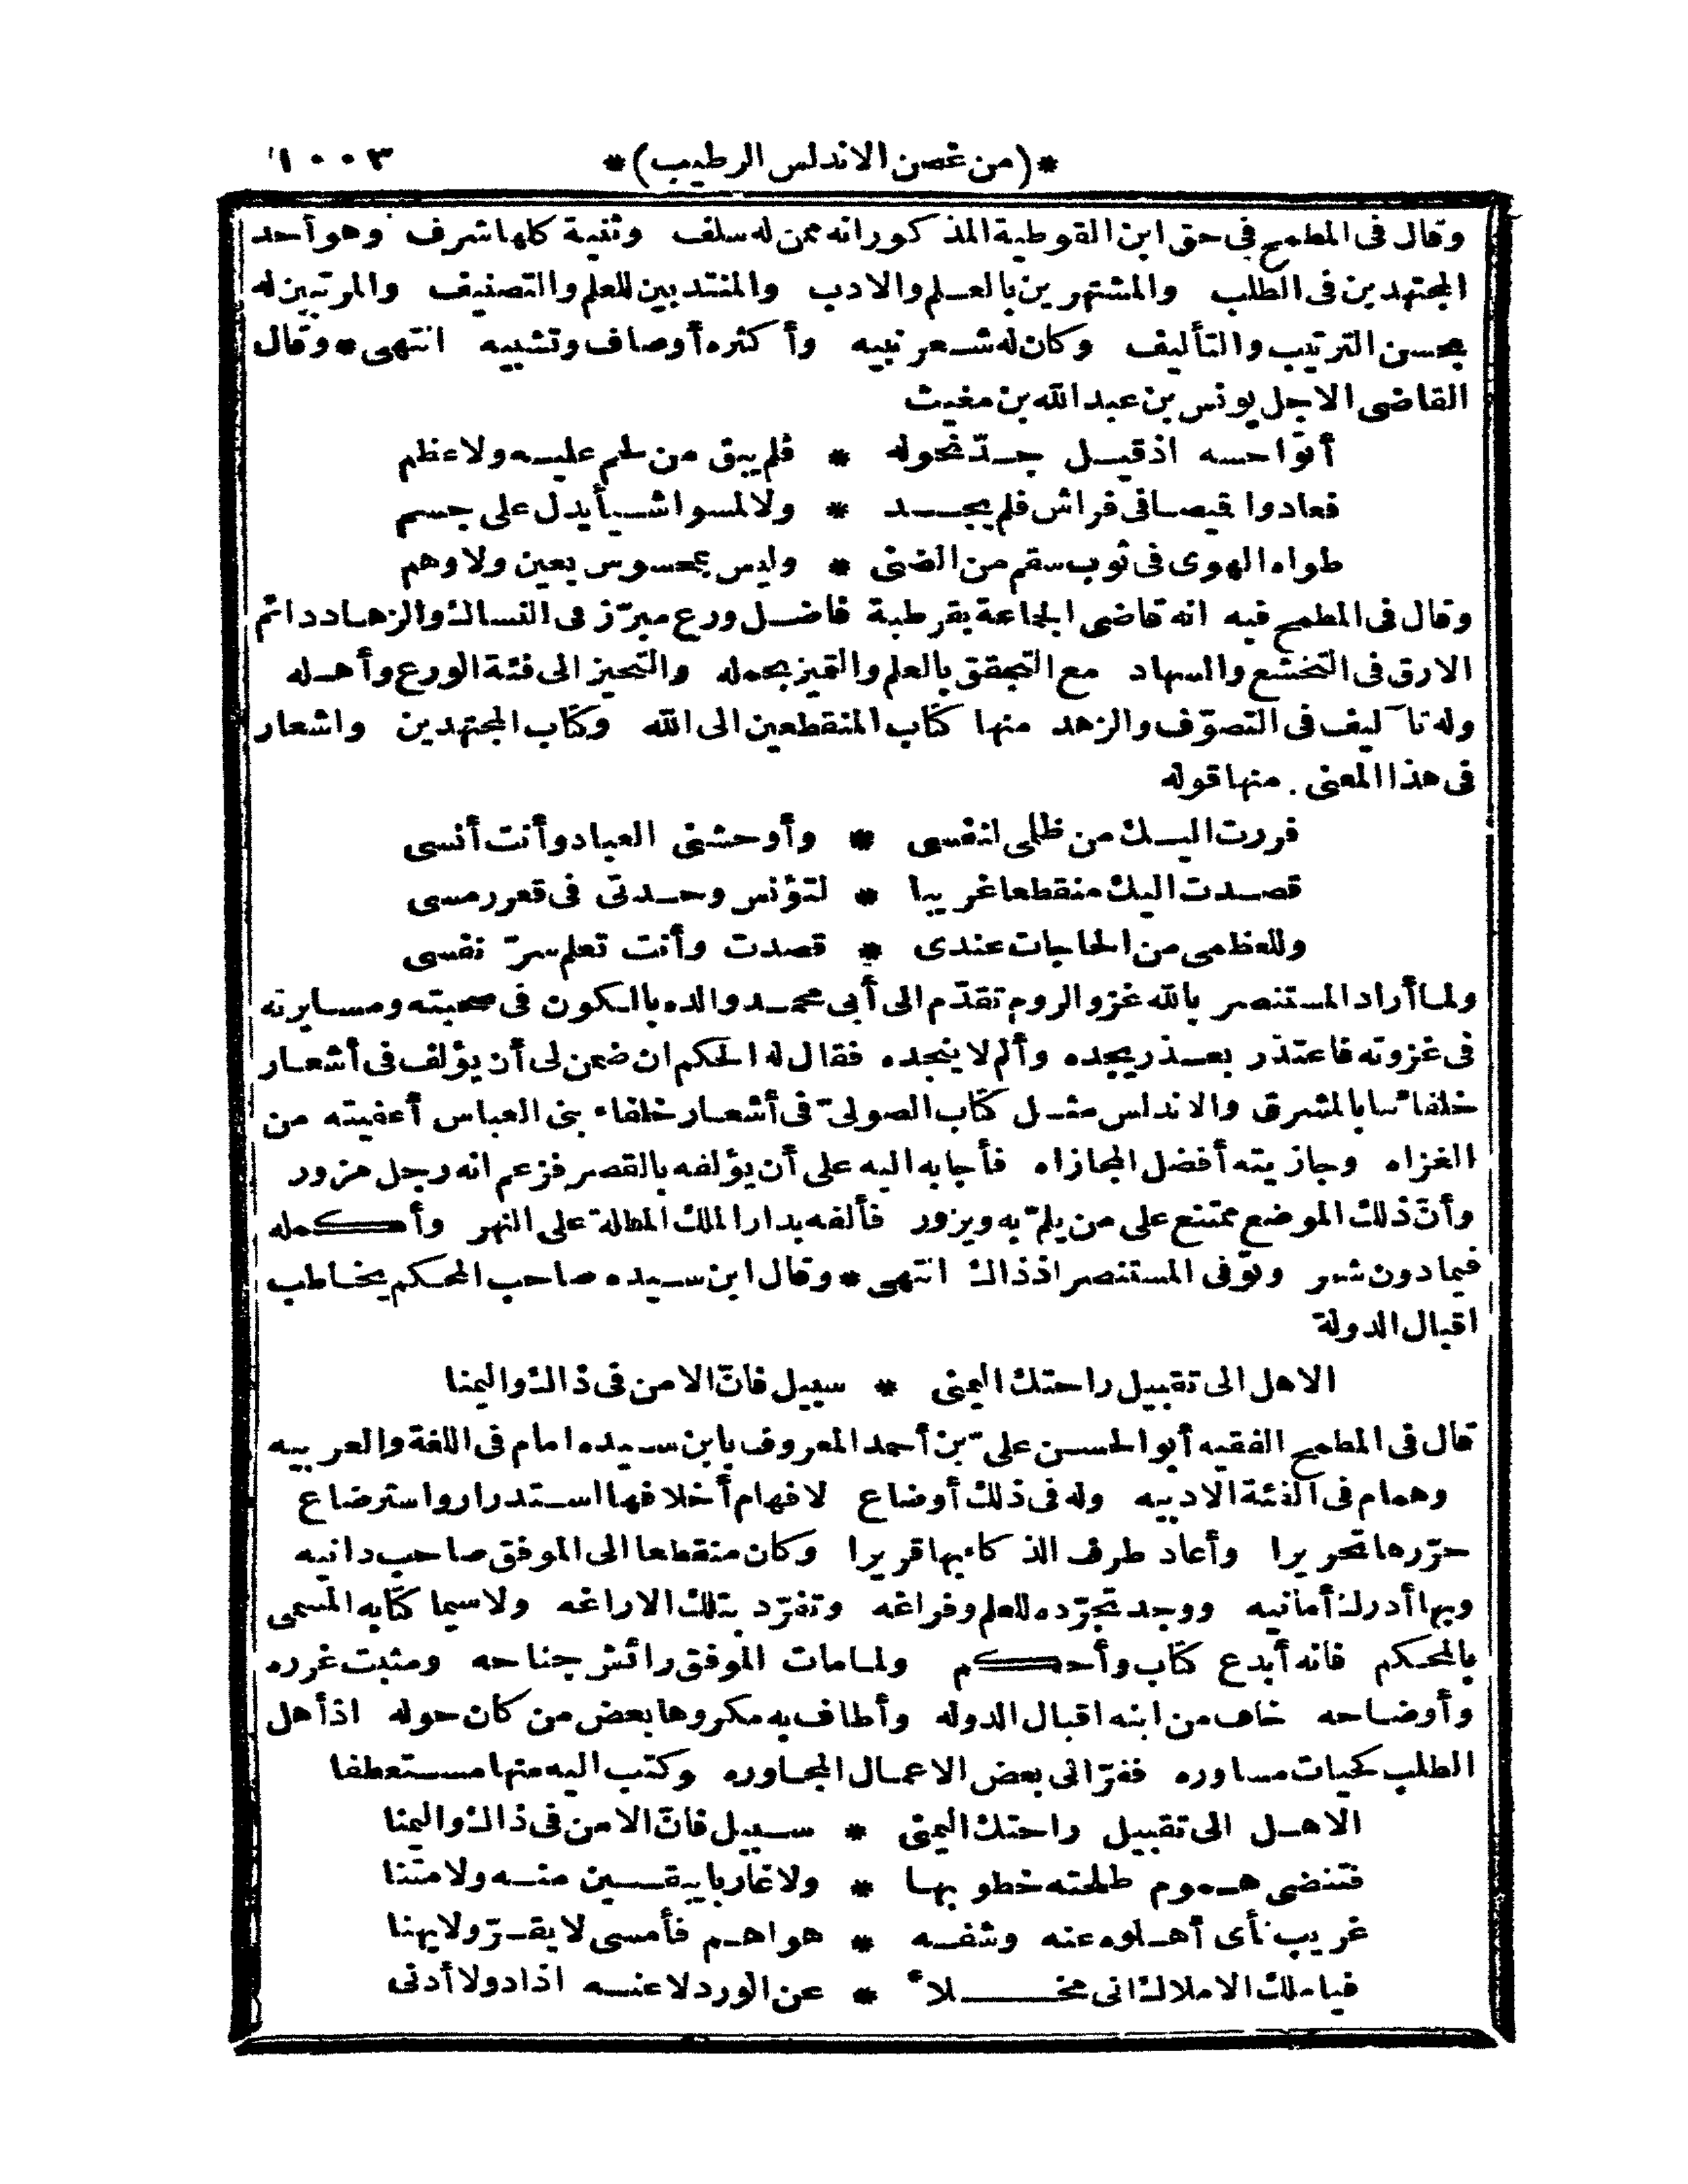 *(من غصن الاندلس الرطيب)* ١٠٠٣
وقال فى المطمح فى حق ابن القوطية المذكور انه ممن له سلف وثنية كلها شرف وهو أحد
المجتهدين فى الطلب والمشتهرين بالعلم والادب والمنتدبين للعلم والتصنيف والمرتبين له
بحسن الترتيب والتأليف وكان له شعر نبيه وأكثره أوصاف وتشبيه انتهى * وقال
القاضى الاجل يونس بن عبد الله بن مغيث
أتوا حسه اذ قيل جدّ نحوله * فلم يبق من لحم عليه ولا عظم
فعادوا قيصا فى فراش فلم يجد * ولا لمسوا شيأ يدل على جسم
طواه الهوى فى ثوب سقم من الضنى * وليس بمحسوس بعين ولا وهم
وقال فى المطمح فيه انه قاضى الجاعة بقرطبة فاضل ورع مبرّز فى النساك والزهاد دائم
الارق فى التخشع والسهاد مع التحقق بالعلم والتميز بحمله والتحيز الى فئة الورع وأهله
وله تآليف فى التصوّف والزهد منها كتاب المنقطعين الى الله وكتاب المجتهدين واشعار
فى هذا المعنى . منها قوله
فررت اليك من ظلمى لنفسى * وأوحشنى العباد وأنت أنسى
قصدت اليك منقطعا غريبا * لتؤنس وحدتى فى قعر رمسى
وللعظمى من الحاجات عندى * قصدت وأنت تعلم سرّ نفسى
ولما أراد المستنصر بالله غزو الروم تقدّم الى أبى محمد والده بالكون فى صحبته ومسايرته
فى غزوته فاعتذر بعذر يجده وألم لا ينجده فقال له الحكم ان ضمن لى أن يؤلف فى أشعار
خلفائنا بالمشرق والاندلس مثل كتاب الصولىّ فى أشعار خلفاء بنى العباس أعفيته من
الغزاه وجازيته أفضل المجازاه فأجابه اليه على أن يؤلفه بالقصر فزعم انه رجل مزور
وأنّ ذلك الموضع ممتنع على من يلمّ به ويزور فألفه بدار الملك المطلة على النهر وأكمله
فيما دون شهر وتوّفى المستنصر اذ ذاك انتهى * وقال ابن سيده صاحب المحكم يخاطب
اقبال الدولة
الاهل الى تقبيل راحتك اليمنى * سبيل فانّ الامن فى ذاك واليمنا
قال فى المطمح الفقيه أبو الحسن علىّ بن أحمد المعروف بابن سيده امام فى اللغة والعربيه
وهمام فى الفئة الادبيه وله فى ذلك أوضاع لافهام أخلافها استدرار واسترضاع
حرّرها تحريرا وأعاد طرف الذكاء بها قريرا وكان منقطعا الى الموفق صاحب دانيه
وبها أدرك أمانيه ووجد تجرّده للعلم وفراغه وتفرّد بتلك الاراغه ولاسيما كتابه المسمى
بالمحكم فانه أبدع كتاب وأحكم ولما مات الموفق رائش جناحه ومثبت غرره
وأوضاحه خاف من ابنه اقبال الدوله وأطاف به مكروها بعض من كان حوله اذ أهل
الطلب كحيات مساوره ففرّ الى بعض الاعمال المجاوره وكتب اليه منها مستعطفا
الاهل الى تقبيل راحتك اليمنى * سبيل فانّ الامن فى ذاك واليمنا
فتنضى هموم طلحته خطوبها * ولا غاربا يبقين منه ولا متنا
غريب نأى أهلوه عنه وشفه * هواهم فأمسى لا يقرّ ولا يهنا
فيا ملك الاملاك انى محلأ * عن الورد لا عنه اذاد ولا أدنى